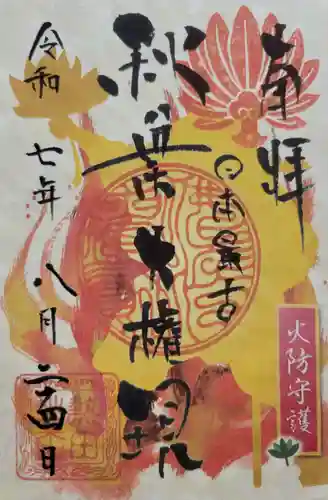 奉拝
日本最古
秋葉大権現
令和七年八月二四日
火防守護